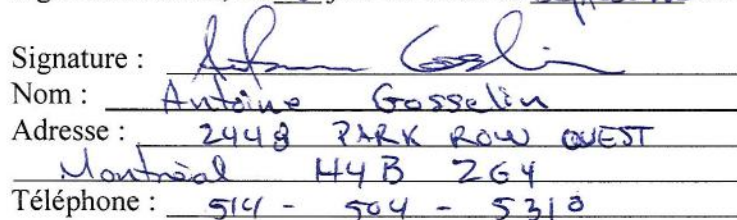 Signature :
Nom : Antoine Gosselin
Adresse : 2448 PARK ROW OUEST
Montréal H4B 2G4
Téléphone : 514 - 504 - 5310